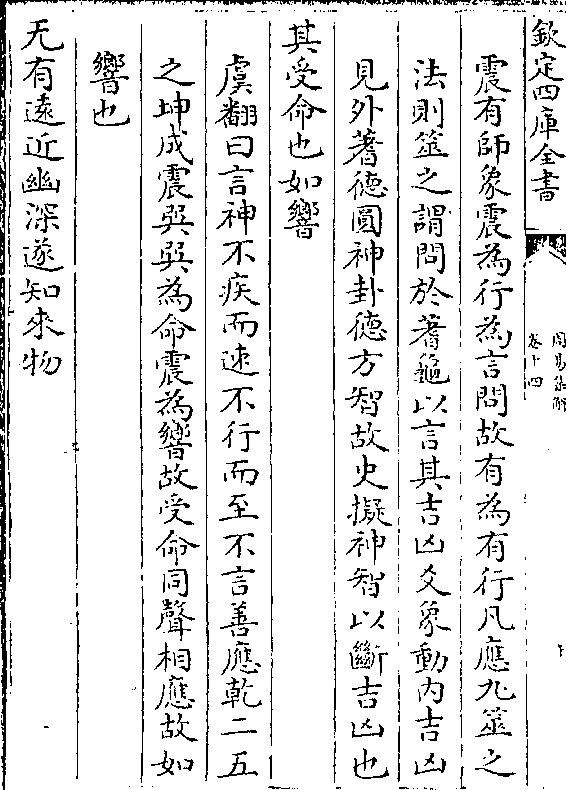 欽定四庫全書
周易集解
卷十四
震有師象震為行為言問故有為有行凡應九筮之
法則筮之謂問於蓍龜以言其吉凶爻象動内吉凶
見外蓍德圓神卦德方智故史擬神智以斷吉凶也
其受命也如響
虞翻曰言神不疾而速不行而至不言善應乾二五
之坤成震巽巽為命震為響故受命同聲相應故如
響也
无有遠近幽深遂知來物